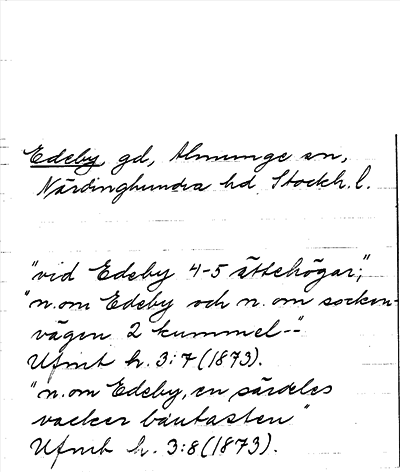 Edeby gd, Almunge sn,
Närdinghundra hd Stockh. l.
"vid Edeby 4-5 ättehögar;"
"n. om Edeby och n. om socken-
vägen 2 kummel--"
Ufmt h. 3:7 (1873).
"n. om Edeby, en särdeles
vacker bautasten"
Ufmt h. 3:8 (1873).